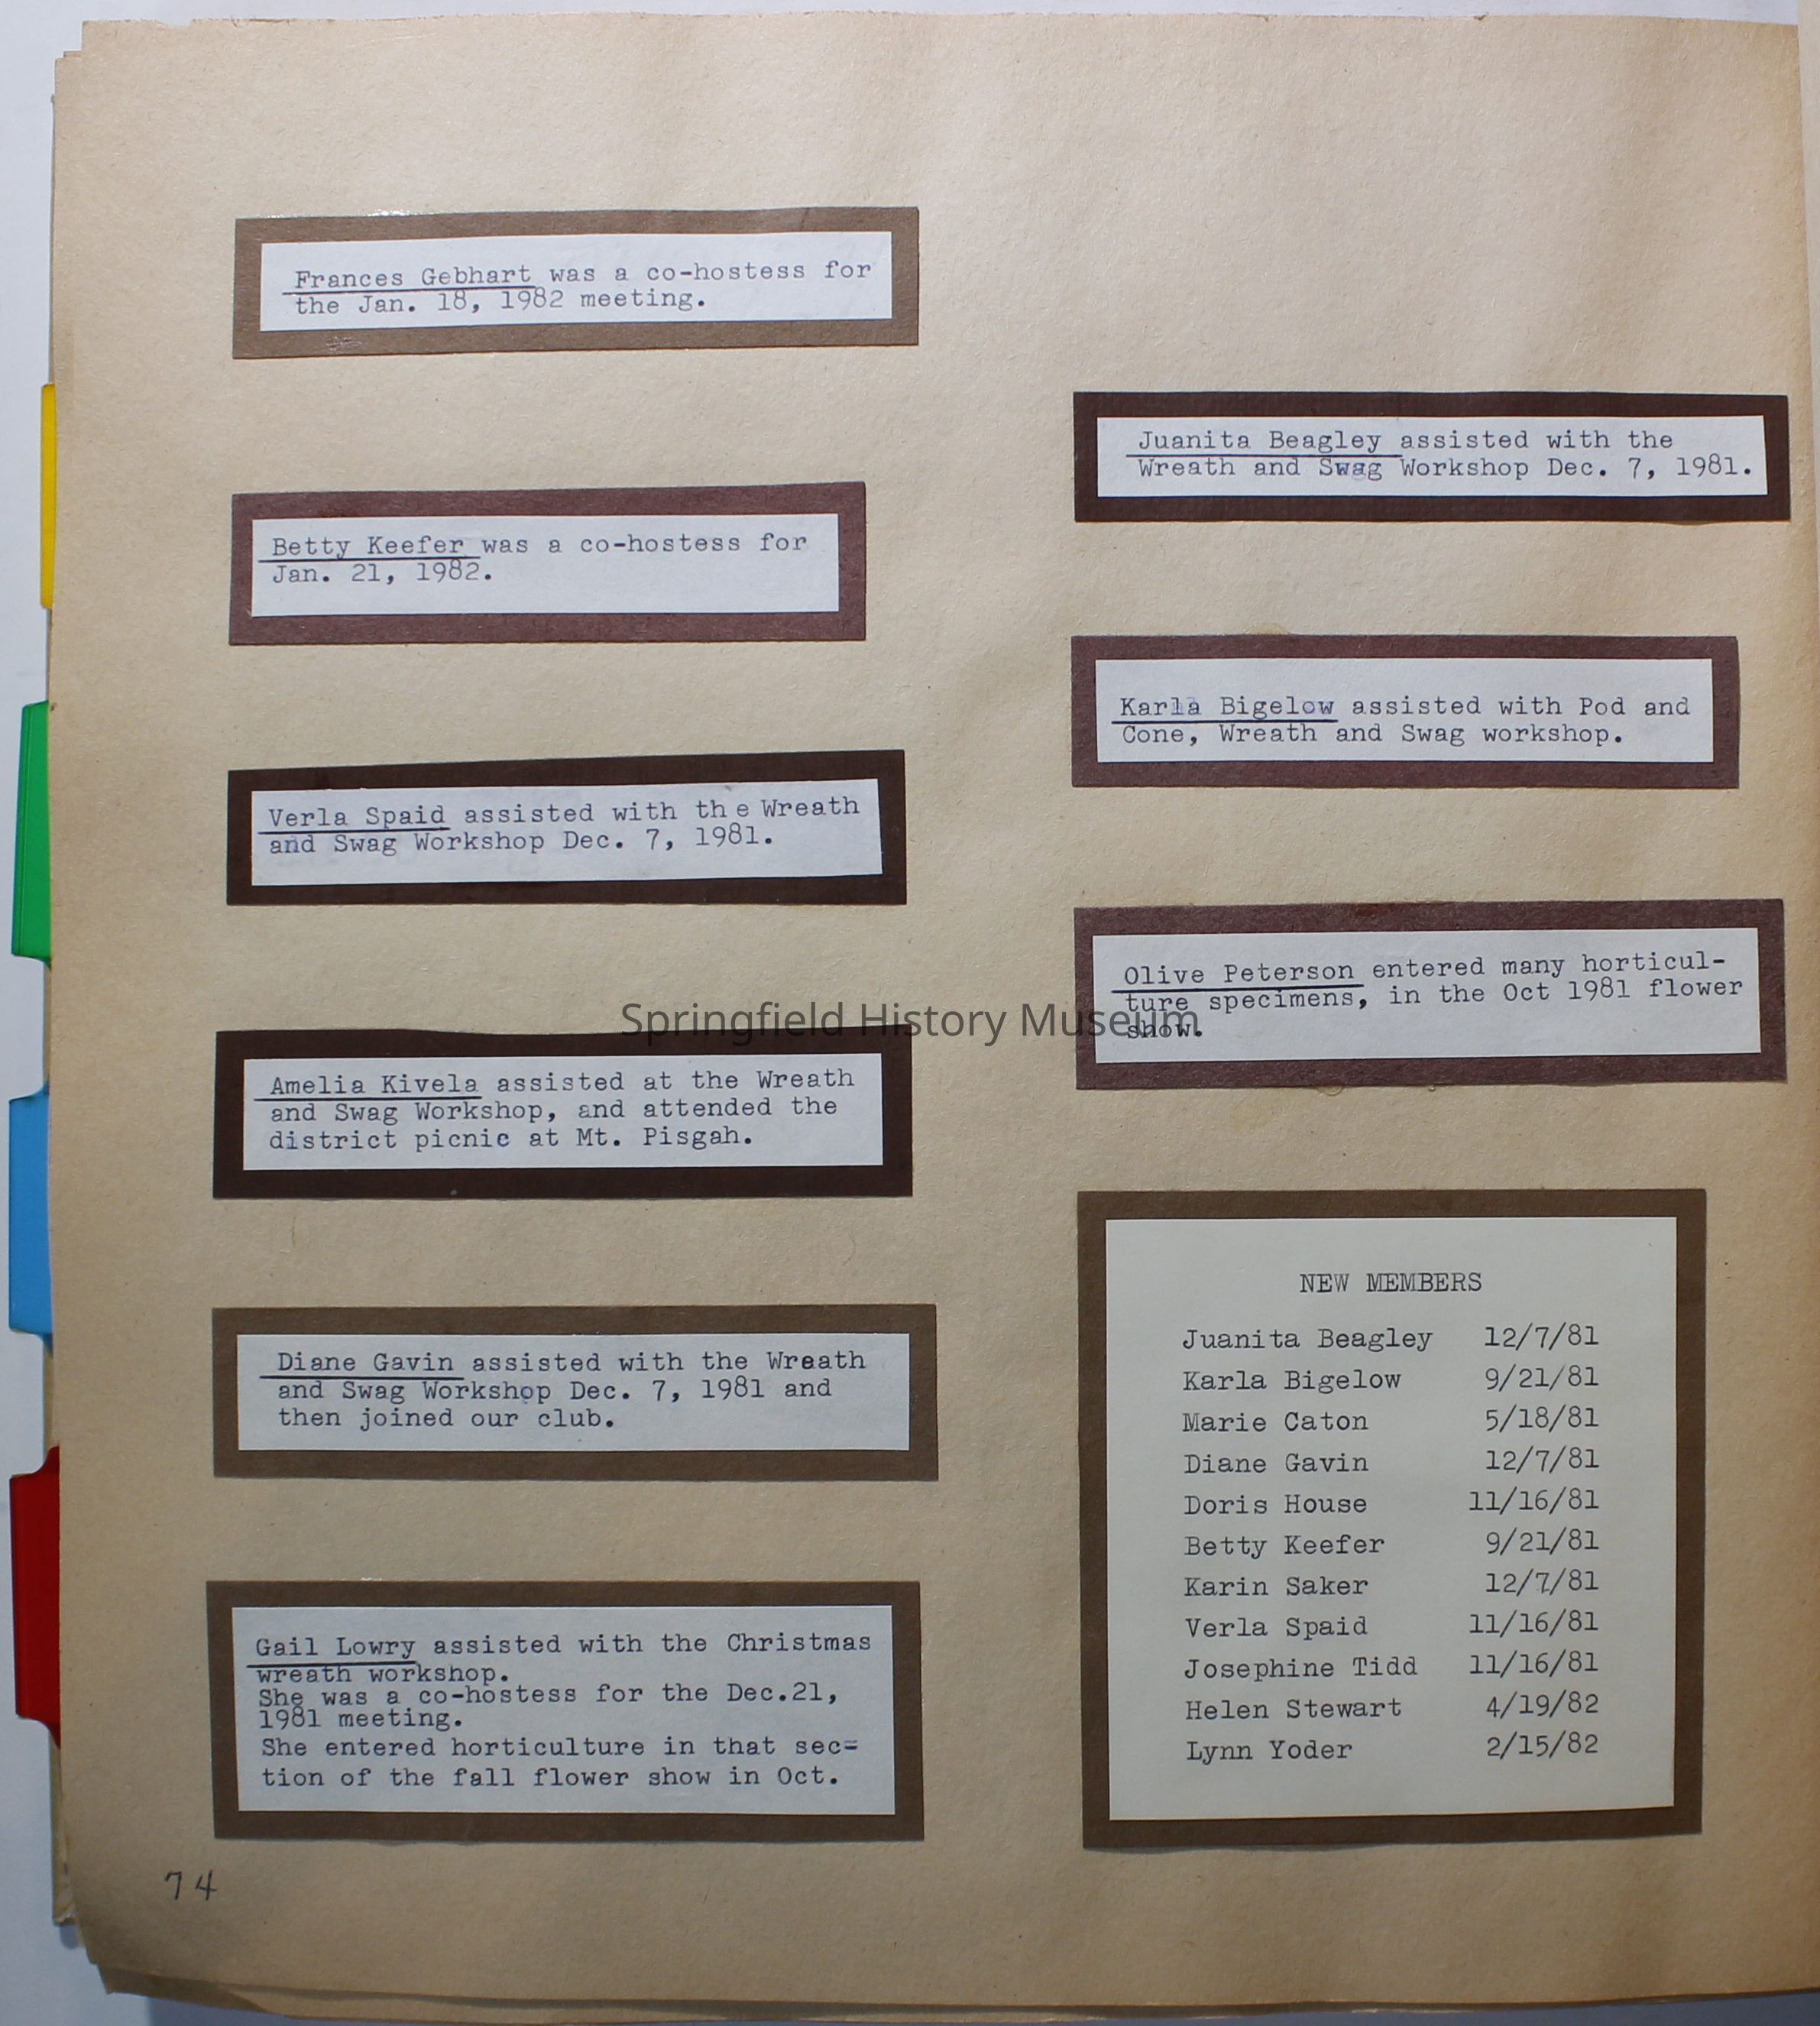 Frances Gebhart was a co-hostess for
the Jan. 18, 1982 meeting.
Betty Keefer was a co-hostess for
Jan. 21, 1982.
Verla Spaid assisted with the Wreath
and Swag Workshop Dec. 7, 1981.
Amelia Kivela assisted at the Wreath
and Swag Workshop, and attended the
district picnic at Mt. Pisgah.
Diane Gavin assisted with the Wreath
and Swag Workshop Dec. 7, 1981 and
then joined our club.
Gail Lowry assisted with the Christmas
wreath workshop.
She was a co-hostess for the Dec.21,
1981 meeting.
She entered horticulture in that sec=
tion of the fall flower show in Oct.
74
Juanita Beagley assisted with the
Wreath and Swag Workshop Dec. 7, 1981.
Karla Bigelow assisted with Pod and
Cone, Wreath and Swag workshop.
Olive Peterson entered many horticul-
ture specimens, in the Oct 1981 flower
show.
NEW MEMBERS
Juanita Beagley 12/7/81
Karla Bigelow 9/21/81
Marie Caton 5/18/81
Diane Gavin 12/7/81
Doris House 11/16/81
Betty Keefer 9/21/81
Karin Saker 12/7/81
Verla Spaid 11/16/81
Josephine Tidd 11/16/81
Helen Stewart 4/19/82
Lynn Yoder 2/15/82
Springfield History Museum